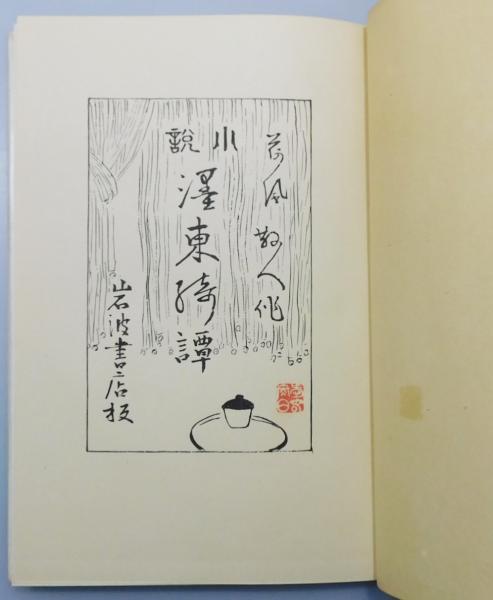 荷風散人作
小說
濹東綺譚
岩波書店板